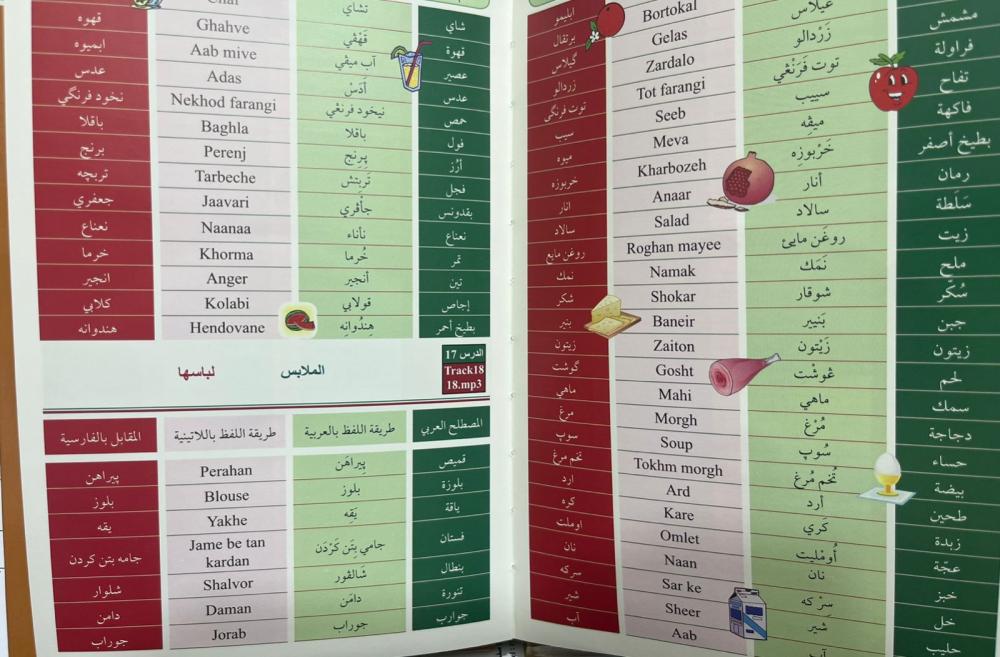 ابلیمو
Bortokal برتقال
غيلاس Gelas گیلاس
مشمش زَرْدالو Zardalo زردالو
فراولة توت فَرَنْغي Tot farangi توت فرنگی
تفاح سيب Seeb سیب
فاكهة ميڤِه Meva میوه
بطيخ أصفر خَرْبوزِه Kharbozeh خربوزه
رمان أنار Anaar انار
سَلَطة سالاد Salad سالاد
زيت روغَن مايئ Roghan mayee روغن مایع
ملح نَمَك Namak نمك
سُكّر شوقار Shokar شکر
جبن بَنيير Baneir پنیر
زيتون زَيْتون Zaiton زیتون
لحم غوشْت Gosht گوشت
سمك ماهي Mahi ماهي
دجاجة مُرْغ Morgh مرغ
حساء سُوپ Soup سوپ
بيضة تُخم مُرغ Tokhm morgh تخم مرغ
طحين أرد Ard ارد
زبدة كَري Kare كره
عجّة أُومْليت Omlet اوملت
خبز نان Naan نان
خل سِرْ كه Sar ke سرکه
حليب شير Sheer شیر
Aab آب
شاي تشاي
قهوة قَهْڤي Ghahve قهوه
عصير آب ميڤي Aab mive ابمیوه
عدس أَدَسْ Adas عدس
حمص نيخود فرنڠي Nekhod farangi نخود فرنگي
فول باقلا Baghla باقلا
أرُز پِرِنج Perenj برنج
فجل تَربتش Tarbeche تربچه
بقدونس جأفَري Jaavari جعفري
نعناع نأناء Naanaa نعناع
تمر خُرما Khorma خرما
تين أنجير Anger انجير
إجاص قولابي Kolabi كلابي
بطيخ أحمر هِندُوانِه Hendovane هندوانه
الدرس 17
Track18
18.mp3
الملابس لباسها
المصطلح العربي طريقة اللفظ بالعربية طريقة اللفظ باللاتينية المقابل بالفارسية
قميص پيراهَن Perahan پیراهن
بلوزة بلوز Blouse بلوز
ياقة يَقِه Yakhe یقه
فستان جامي بِتَن كَرْدَن Jame be tan kardan جامه بتن کردن
بنطال شالڤور Shalvor شلوار
تنورة دامَن Daman دامن
جوارب جوراب Jorab جوراب